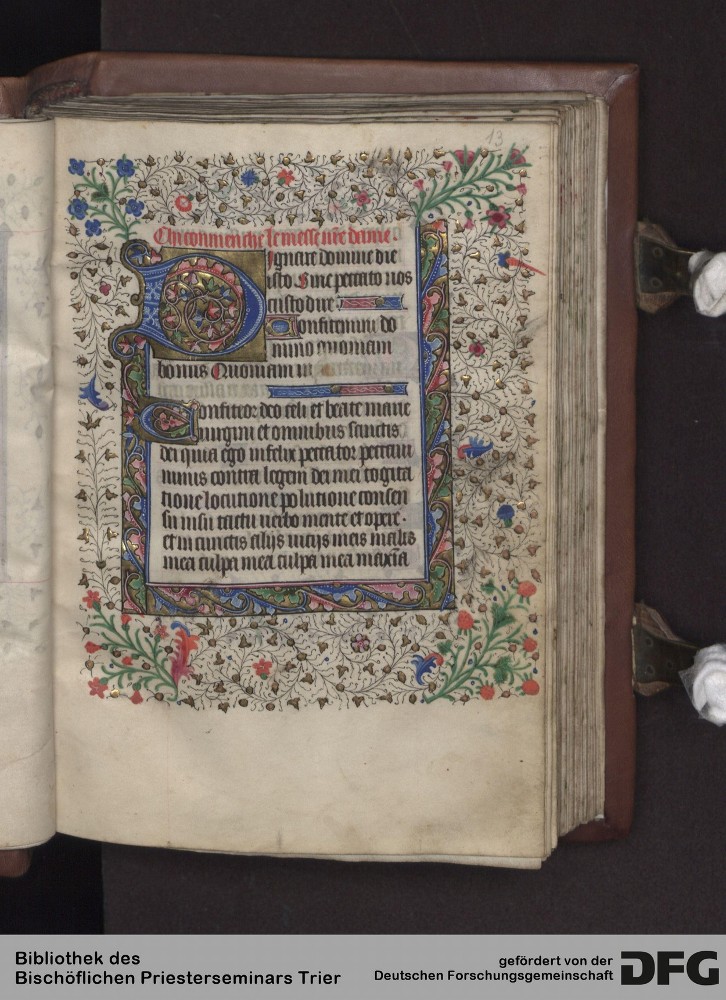 13
Chi conmenche le messe nr̄e dame
Dignare domine die
isto Sine peccato nos
custodire
Confitemini do
mino quoniam
bonus Quoniam in
Confiteor deo celi et beate marie
uirgini et omnibus sanctis
dei quia ego infelix peccator peccaui
nimis contra legem dei mei cogita
tione locutione polutione consen
su uisu tactu uerbo mente et opere .
et in cunctis alijs uicijs meis malis
mea culpa mea culpa mea maxīa
Bibliothek des
Bischöflichen Priesterseminars Trier
gefördert von der
Deutschen Forschungsgemeinschaft
DFG